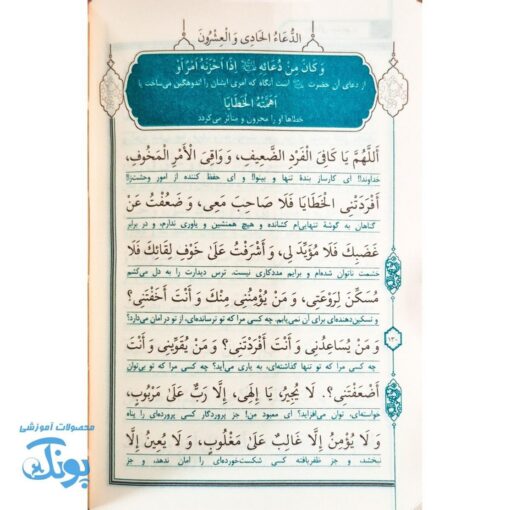 الدُّعَاءُ الْحَادِی وَ الْعِشْرُونَ
وَ كَانَ مِنْ دُعَائِهِ إِذَا أَحْزَنَهُ أَمْرٌ أَوْ
از دعای آن حضرت است آنگاه که امری ایشان را اندوهگین می‌ساخت یا
أَهَمَّتْهُ الْخَطَايَا
خطاها او را محزون و متاثر می‌کردد
أَللَّهُمَّ يَا كَافِیَ الْفَرْدِ الضَّعِيفِ، وَ وَاقِیَ الْأَمْرِ الْمَخُوفِ،
خداوندا! ای کارساز بندهٔ تنها و بینوا! و ای حفظ کننده از امور وحشت‌زا!
أَفْرَدَتْنِی الْخَطَايَا فَلَا صَاحِبَ مَعِی، وَ ضَعُفْتُ عَنْ
گناهان به گوشهٔ تنهایی‌ام کشانده و هیچ همنشین و یاوری ندارم، و در برابر
غَضَبِكَ فَلَا مُؤَيِّدَ لِی، وَ أَشْرَفْتُ عَلَىٰ خَوْفِ لِقَائِكَ فَلَا
خشمت ناتوان شده‌ام و برایم مددکاری نیست. ترس دیدارت را به دل می‌کشم
مُسَكِّنَ لِرَوْعَتِی، وَ مَنْ يُؤْمِنُنِی مِنْكَ وَ أَنْتَ أَخَفْتَنِی؟
و تسکین‌دهنده‌ای برای آن نمی‌یابم. چه کسی مرا که تو ترسانده‌ای، از تو در امان می‌دارد؟
۱۳۰
وَ مَنْ يُسَاعِدُنِی وَ أَنْتَ أَفْرَدْتَنِی؟ وَ مَنْ يُقَوِّينِی وَ أَنْتَ
چه کسی مرا که تو تنها گذاشته‌ای، به یاری می‌آید؟ چه کسی مرا که تو بی‌توان
أَضْعَفْتَنِی؟. لَا يُجِيرُ، يَا إِلَهِی، إِلَّا رَبٌّ عَلَىٰ مَرْبُوبٍ،
خواسته‌ای، توان می‌افزاید؟ ای معبود من! جز پروردگار کسی پرورده‌ای را پناه
وَ لَا يُؤْمِنُ إِلَّا غَالِبٌ عَلَىٰ مَغْلُوبٍ، وَ لَا يُعِينُ إِلَّا
نبخشد، و جز ظفریافته کسی شکست‌خورده‌ای را امان ندهد، و جز
محصولات آموزشی
پونک